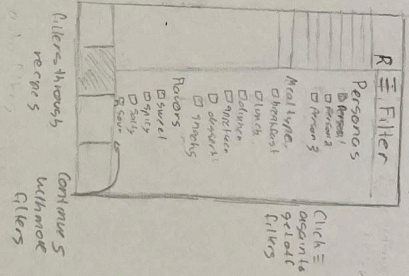 R ☰ Filter
Personas
Person 1
Person 2
Person 3
Mealtype
breakfast
lunch
dinner
appetizer
dessert
snacks
Flavors
sweet
spicy
salty
sour
Click ☰
again to
get off
filters
filters through
recipes
Continues
with more
filters